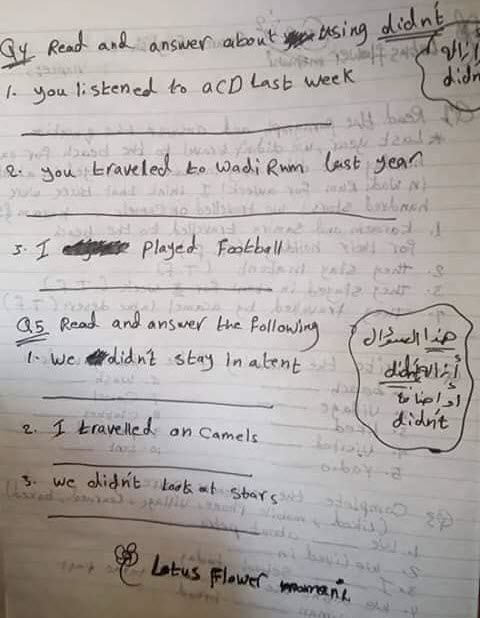 Q4 Read and answer about using didn't
1. you listened to a CD Last week
2. you traveled to Wadi Rum last year
3. I Played Football
Q5 Read and answer the following
1. we didn't stay in a tent
2. I travelled on Camels
3. we didn't look at stars
هذا السؤال
أزالة didn't
أو إضافة
didn't
Lotus Flower momani